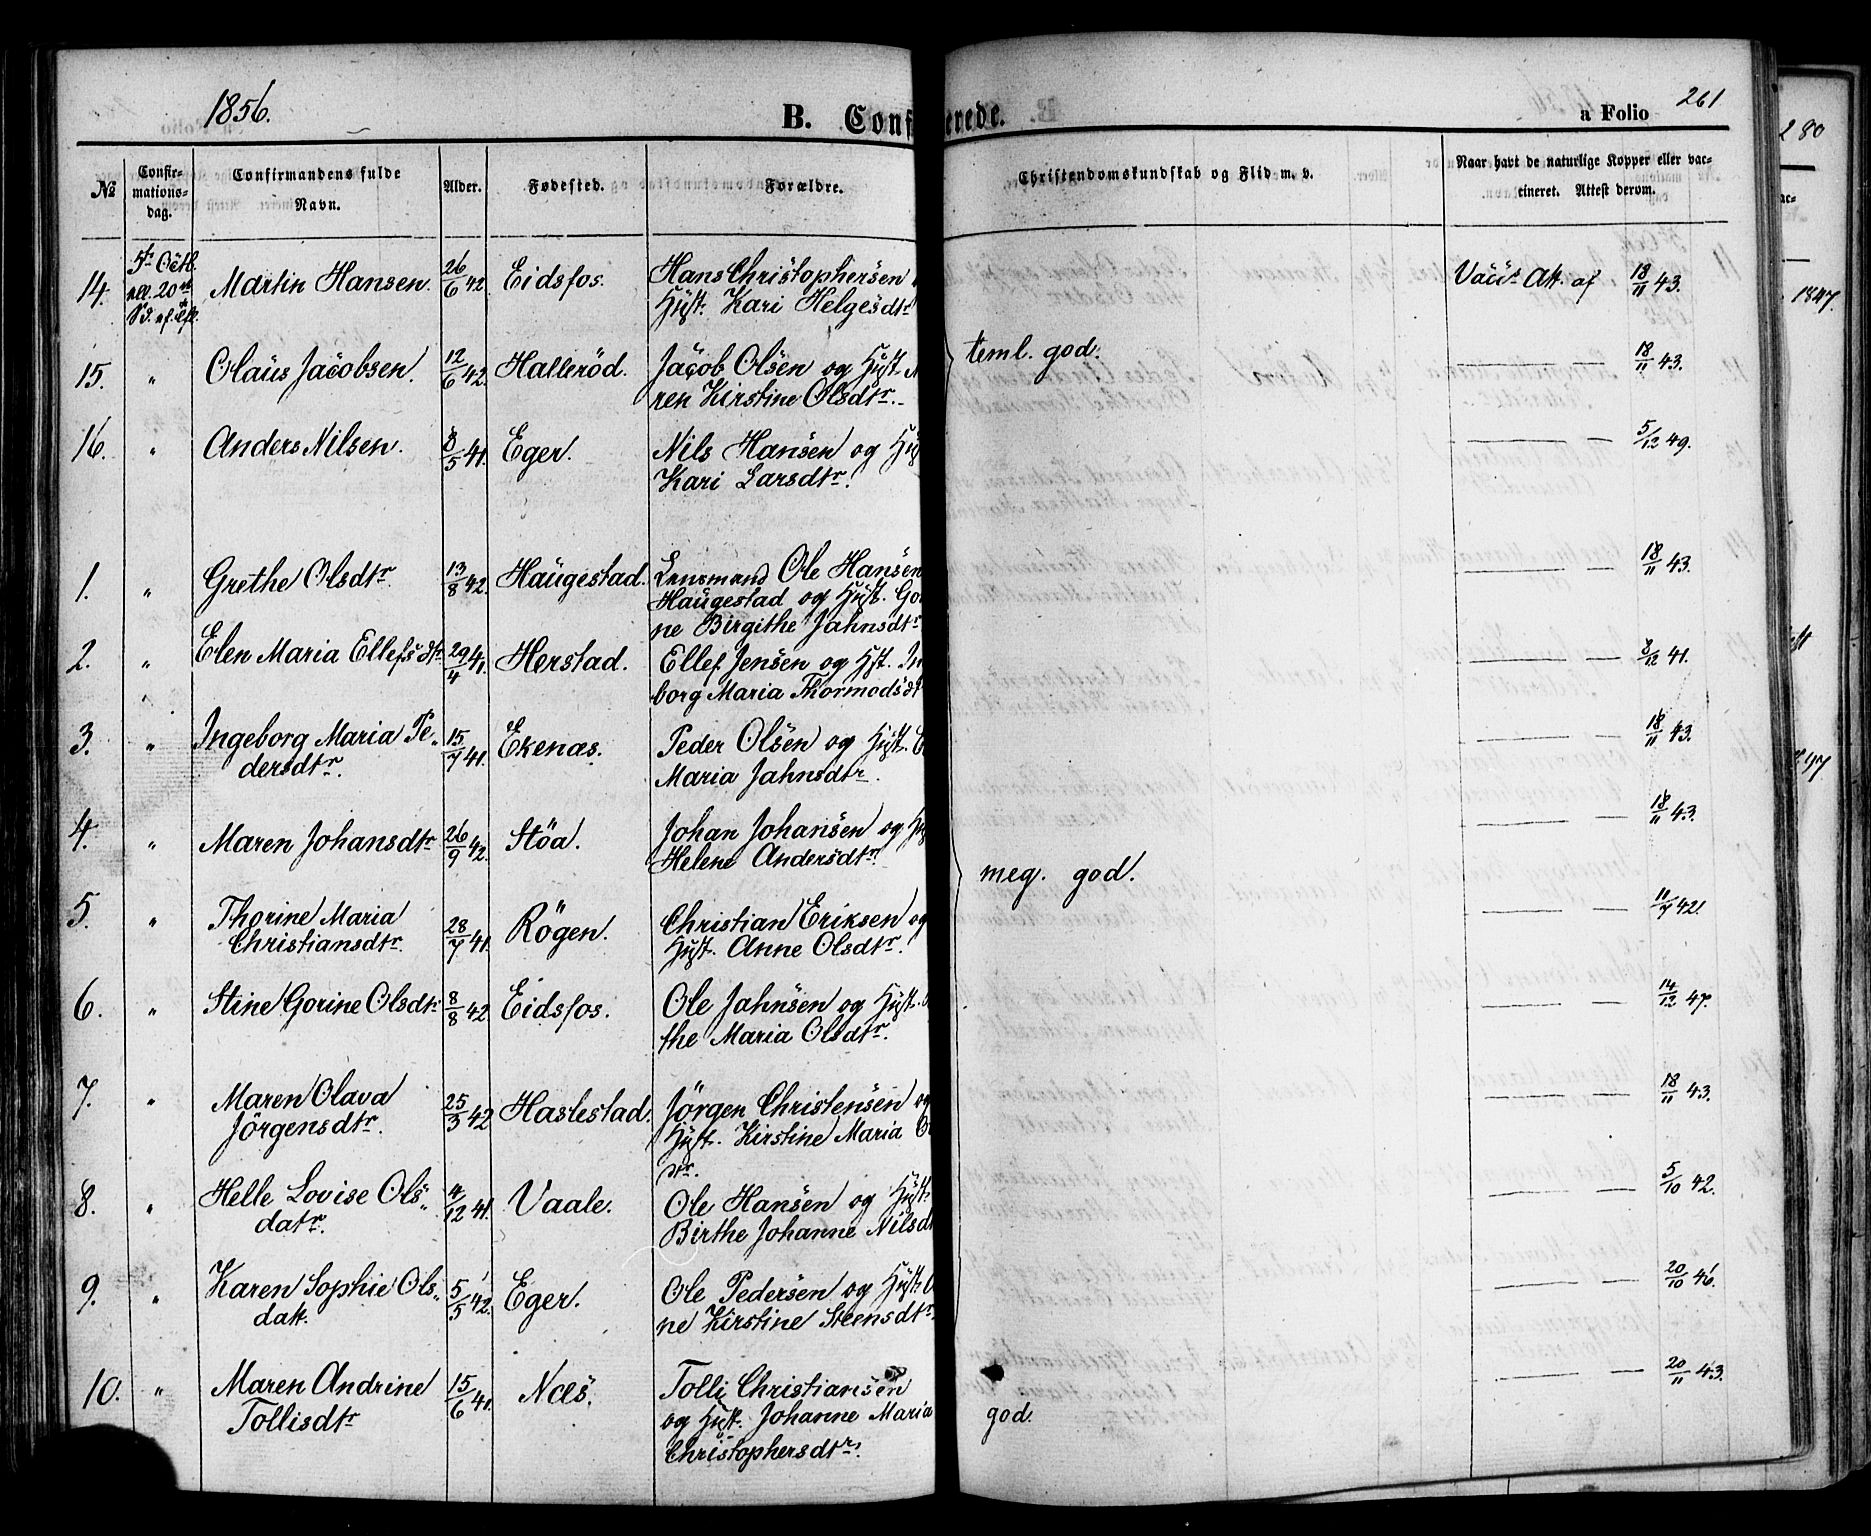 1856.
B. Conf
erede.
a Folio
261
280
№
Confir-
mations-
dag.
Confirmandens fulde
Navn.
Alder.
Fødested.
Forældre.
Christendomskundskab og Flid m. v.
Naar havt de naturlige Kopper eller vac-
cineret. Attest derom.
14. 5te Octb. 20 Martin Hansen. 26/6 42 Eidsfos. Hans Christophersen
Hust. Kari Helgesdtr Vacc. Att. af 18/11 43.
1847.
15. " Olaus Jacobsen. 12/6 42. Halleröd. Jacob Olsen og Hust.
ren Kirstine Olsdtr. teml. god. — — 18/11 43.
16. " Anders Nilsen. 8/5 41. Eger. Nils Hansen og
Kari Larsdtr. — — 5/12 49.
1. " Grethe Olsdtr 13/8 42. Haugestad. Lensmand Ole Hansen
Haugestad og Hust. Go
ne Birgithe Jahnsdtr — — 18/11 43.
2. " Elen Maria Ellefsdtr 29/4 41. Herstad. Ellef Jensen og Hst. In
borg Maria Thormodsdt — — 8/12 41.
3. " Ingeborg Maria Pe-
dersdtr. 15/7 41. Ekenæs. Peder Olsen og Hust.
Maria Jahnsdtr. — — 18/11 43.
4. " Maren Johansdtr 26/9 42. Stöa. Johan Johansen og
Helene Andersdtr. — — 18/11 43.
meg. god.
5. " Thorine Maria
Christiansdtr. 28/7 41. Rögen. Christian Eriksen og
Hust. Anne Olsdtr. — — 11/7 42.
6. " Stine Gorine Olsdtr 8/8 42. Eidsfos. Ole Jahnsen og Hust.
the Maria Olsdtr. — — 14/12 47.
7. " Maren Olava
Jörgensdtr. 25/3 42 Haslestad. Jörgen Christensen og
Hust. Kirstine Maria O
dtr. — — 18/11 43.
8. " Helle Lovise Ols-
datr. 4/12 41. Vaale. Ole Hansen og Hust.
Birthe Johanne Nilsdt — — 5/10 42.
9. " Karen Sophie Ols-
datt. 5/5 42. Eger. Ole Pedersen og Hust.
ne Kirstine Steensdtr. — — 20/10 46.
10. " Maren Andrine
Tollisdtr 15/6 41. Næs. Tolli Christiansen
og Hust. Johanne Maria
Christophersdtr. god. — 20/11 43.